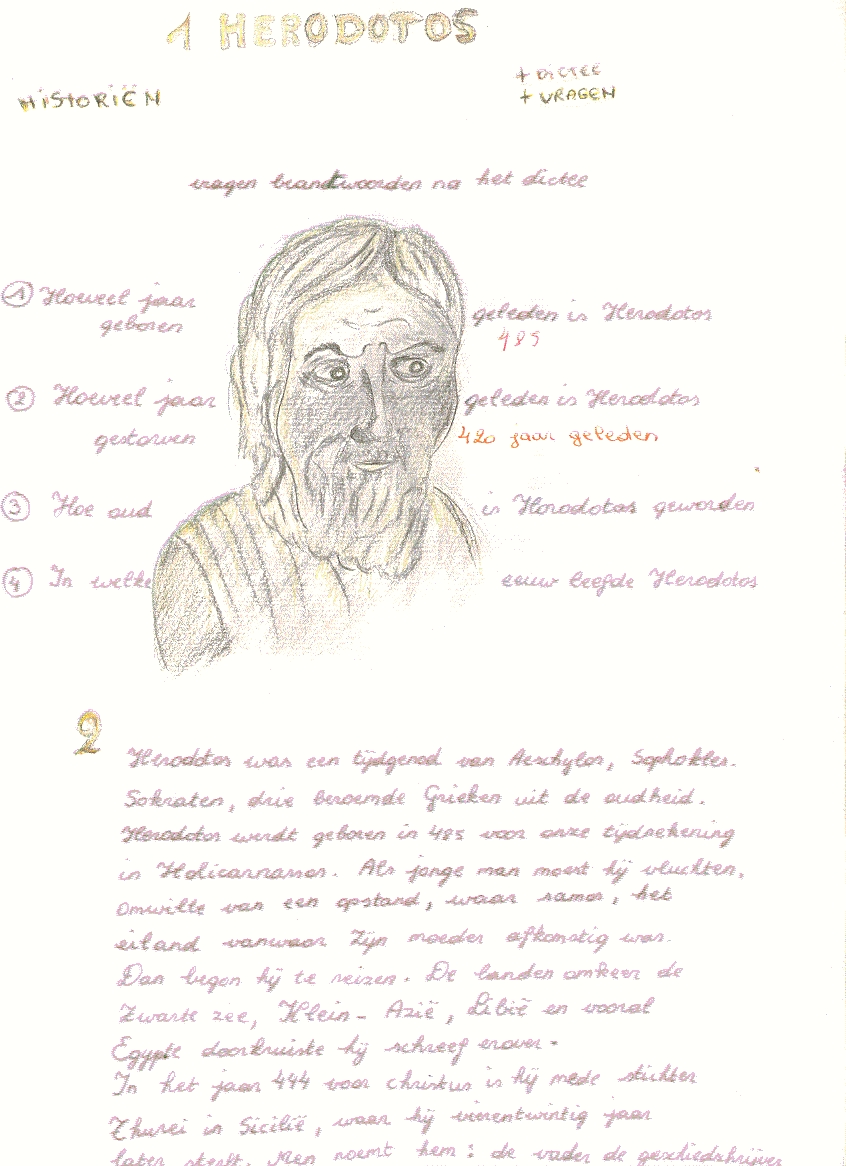 1 HERODOTOS
HISTORIËN
+ DICTEE
+ VRAGEN
vragen beandtwoorden na het dictee
1 Hoeveel jaar geleden is Herodotos
geboren
485
2 Hoeveel jaar geleden is Herodotos
gestorven
420 jaar geleden
3 Hoe oud is Horodotos geworden
4 In welke eeuw leefde Herodotos
2
Herodotos was een tijdgenod van Aeschylos, Sophokles.
Sokraten, drie beroemde Grieken uit de oudheid.
Herodotos werdt geboren in 485 voor onze tijdrekening
in Holicarnassos. Als jonge man moest hij vluchten,
omwille van een opstand, waar samos, het
eiland vanwaar zijn moeder afkomstig was.
Dan began hij te reizen. De landen omheer de
Zwarte zee, Klein-Azië, Libië en vooral
Egypte doorkruiste hij schreef erover.
In het jaar 444 voor christus is hij mede stichter
Thurei in Sicilië, waar hij vierentwintig jaar
later sterft. Men noemt hem: de vader de geschiedschrijver